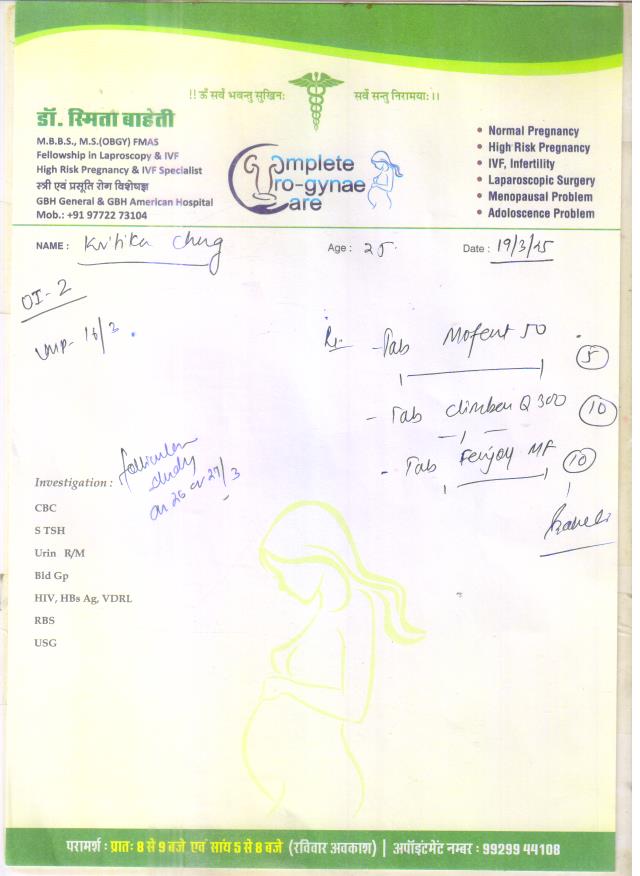 !! ॐ सर्वे भवन्तु सुखिनः सर्वे सन्तु निरामयाः ।।
डॉ. स्मिता बाहेती
M.B.B.S., M.S.(OBGY) FMAS
Fellowship in Laproscopy & IVF
High Risk Pregnancy & IVF Specialist
स्त्री एवं प्रसूति रोग विशेषज्ञ
GBH General & GBH American Hospital
Mob.: +91 97722 73104
Complete
Pro-gynae
Care
• Normal Pregnancy
• High Risk Pregnancy
• IVF, Infertility
• Laparoscopic Surgery
• Menopausal Problem
• Adoloscence Problem
NAME : Kritika Age : 25 Date : 19/3/25
OI-2
LMP- 16/3
Rx - Tab 50 5
- Tab Q 300 10
- Tab MF 10
follicular
study
on 26 or 27/3
Investigation :
CBC
S TSH
Urin R/M
Bld Gp
HIV, HBs Ag, VDRL
RBS
USG
परामर्श : प्रातः 8 से 9 बजे एवं सांय 5 से 8 बजे (रविवार अवकाश) | अपॉइंटमेंट नम्बर : 99299 44108